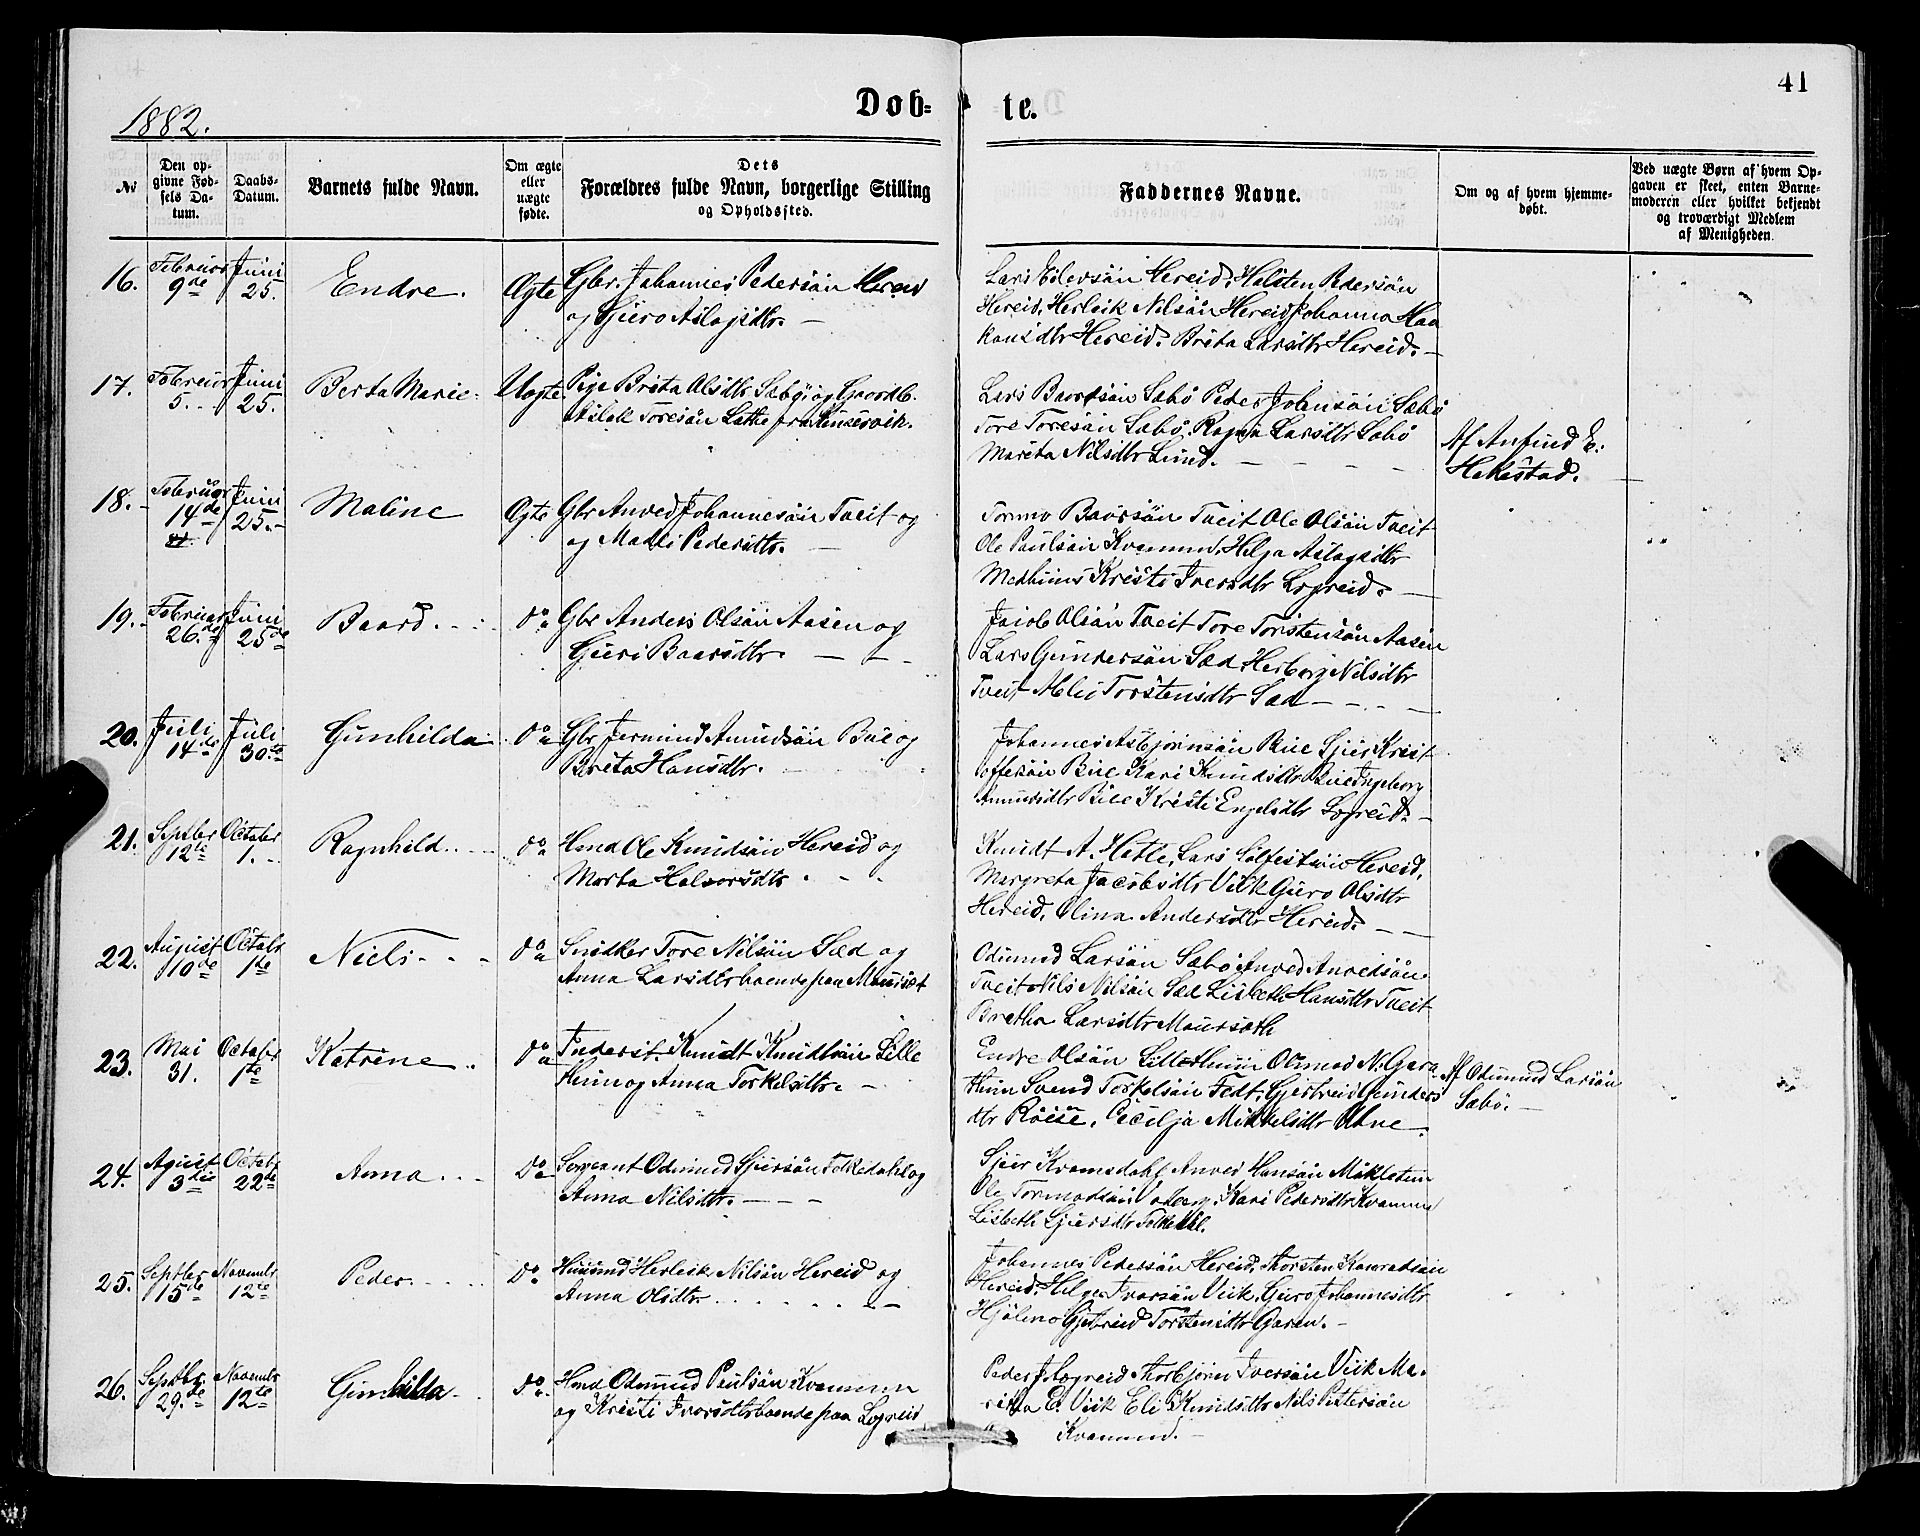 41
1882.
Døb-
te.
№
Den op-
givne Fød-
sels Da-
tum.
Daabs-
Datum.
Barnets fulde Navn.
Om ægte
eller
uægte
fødte.
Dets
Forældres fulde Navn, borgerlige Stilling
og Opholdssted.
Faddernes Navne.
Om og af hvem hjemme-
døbt.
Ved uægte Børn af hvem Op-
gaven er skeet, enten Barne-
moderen eller hvilket bekjendt
og troværdigt Medlem
af Menigheden.
16. Februar 9de Juni 25. Endre. Ægte Gbr. Johannes Pedersøn Hereid
og Guro Aslagsdtr. —
Lars Eilevsøn Hereid, Halsten Pedersøn
Hereid, Herleik Nilsøn Hereid Johanna Haa
konsdtr Hereid. Brita Larsdtr Hereid. —
17. Februar 5. Juni 25. Berta Marie. Uægte. Pige Brita Olsdtr Sæbø og Gaardb.
Aslak Toresøn Lothe fra Kinservik.
Lars Baardsøn Sæbø Peder Johnsøn Sæbø
Tore Toresøn Sæbø. Ragna Larsdtr Sæbø
Marita Nilsdtr Lund. —
Af Anfind E.
Hekestad.
18. Februar 14de Juni 25. Maline Ægte Gbr Anved Johannesøn Tveit og
og Madli Pedersdtr. —
Tormo Baarsøn Tveit Ole Olsøn Tveit
Ole Paulsøn Kvammd, Helga Aslagsdtr
Medhuus Kristi Iversdtr Legreid. —
19. Februar 26.de Juni 25de Baard. do Gbr Anders Olsøn Aasen og
Guri Baarsdtr. — —
Jacob Olsøn Tveit Tore Torstensøn Aasen
Lars Gundersøn Sæd, Herborg Nilsdtr
Tveit Torstensdtr Sæd — —
20. Juli 14.de Juli 30.te Gunhilda do Gbr Jermund Amundsøn Bue og
Brita Hansdtr.
Johannes Asbjørnsøn Bue Sjur Krist
offesøn Bue Kari Knudsdtr Bue Ingeborg
Amundsdtr Bue Kristi Engelsdtr Legreid. —
21. Septbr 12te October 1. Ragnhild. do Hmd Ole Knudsøn Hereid og
Marta Halvorsdtr
Knudt A. Hetle, Lars Sølfestsøn Hereid.
Margreta Jacobsdtr Viik Guro Olsdtr
Hereid. Olina Andersdtr Hereid. — —
22. August 10de Octobr 1te Niels. do Snidker Tore Nilsøn Sæd og
Anna Larsdtr boende paa Maursæt
Odmund Larsøn Sæbø Anved Anvedsøn
Tveit Nils Nilsøn Sæd Lisbeth Hansdtr Tveit
Bretha Larsdtr Maursæth
23. Mai 31. Octobr 1te Katrine. do Inderst Knudt Knudtsøn Lille
Huun og Anna Torkelsdtr. —
Endre Olsøn Lillethuun Odmod N. Gara
thun Svend Torkelsøn Fedt, Gjertreid Gunders
dtr Røise. Cecilja Mikkelsdtr Utne.
Af Odmund Larsøn
Sæbø. —
24. Agust 3die Octobr 22de Anna. do Sergeant Odmund Sjursøn Folkedahl og
Anna Nilsdtr. — — —
Sjur Kvamsdahl, Anved Hansøn Mikletun
Ole Tormodsøn, Kari Pedersdtr Kvammd
Lisbeth Sjursdtr Folkedal.
25. Septbr 15de Novembr 12te Peder. do Huusmd Herleik Nilsøn Hereid og
Anna Olsdtr.
Johannes Pedersøn Hereid. Thorsten Konradsøn
Hereid, Helge Ivarsøn Viik, Guro Johannesdtr
Hjølmo Gjetreid Torstensdtr Garen. —
26. Septbr 29.de Novembr 12te Gunhilda. do. Hmd Odmund Paulsøn Kvammen
og Kristi Ivarsdtr boende paa Legreid
Peder J Legreid Thorbjørn Iversøn Viik Ma-
ritha E. Viik Eli Knudsdtr Nils Pettersøn
Kvammd. —